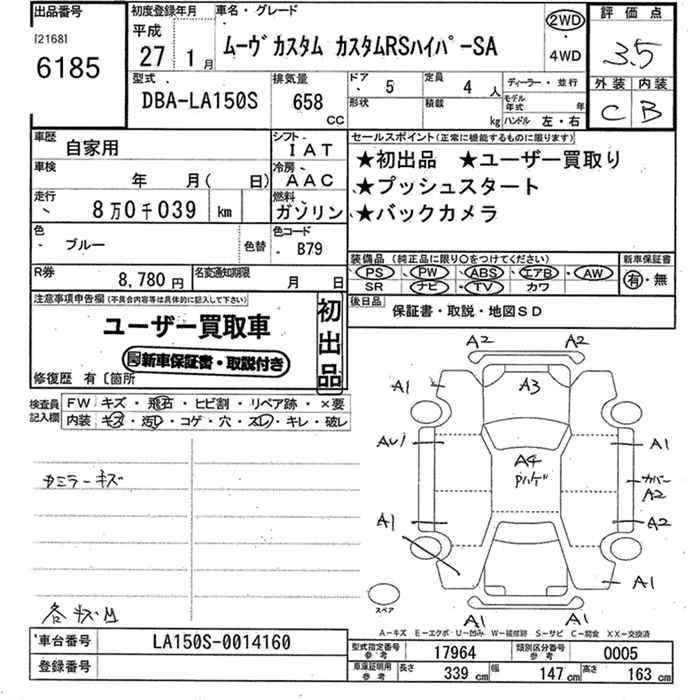 出品番号
[2168]
6185
初度登録年月
平成
27 1月
車名・グレード
ムーヴカスタム カスタムRSハイパーSA
2WD
・
4WD
評価点
3.5
外装 内装
C B
型式
DBA-LA150S
排気量
658
CC
ドア 5
形状
定員 4 人
積載 kg
ディーラー・並行
モデル年式 年
ハンドル 左・右
車歴 自家用
車検 年 月( 日)
走行 8万0千039 km
色 ブルー 色替
シフト IAT
冷房 AAC
燃料 ガソリン
色コード B79
セールスポイント(正常に機能するものに限ります)
★初出品 ★ユーザー買取り
★プッシュスタート
★バックカメラ
装備品(純正品に限り○をつけてください)
PS・PW・ABS・エアB・AW
SR ナビ・TV カワ
新車保証書
有・無
R券 8,780円
名変通知期限 月 日
後日品 保証書・取説・地図SD
注意事項申告欄(不具合内容等は具体的に記入して下さい)
ユーザー買取車
新車保証書・取説付き
初出品
修復歴 有〔箇所
検査員記入欄
FW キズ・飛石・ヒビ割・リペア跡・×要
内装 キズ・汚レ・コゲ・穴・スレ・キレ・破レ
カミラーキズ
各キズ凹
A2 A2
A1 A3
AU1 A1
A4
カバー
A2
A1 A2
A1
A1 A1
スペア
A-キズ E-エクボ U-凹み W-補修跡 S-サビ C-腐食 XX-交換済
車台番号 LA150S-0014160
登録番号
型式指定番号 参考 17964
類別区分番号 参考 0005
車庫証明用 参考 長さ 339 cm 幅 147 cm 高さ 163 cm